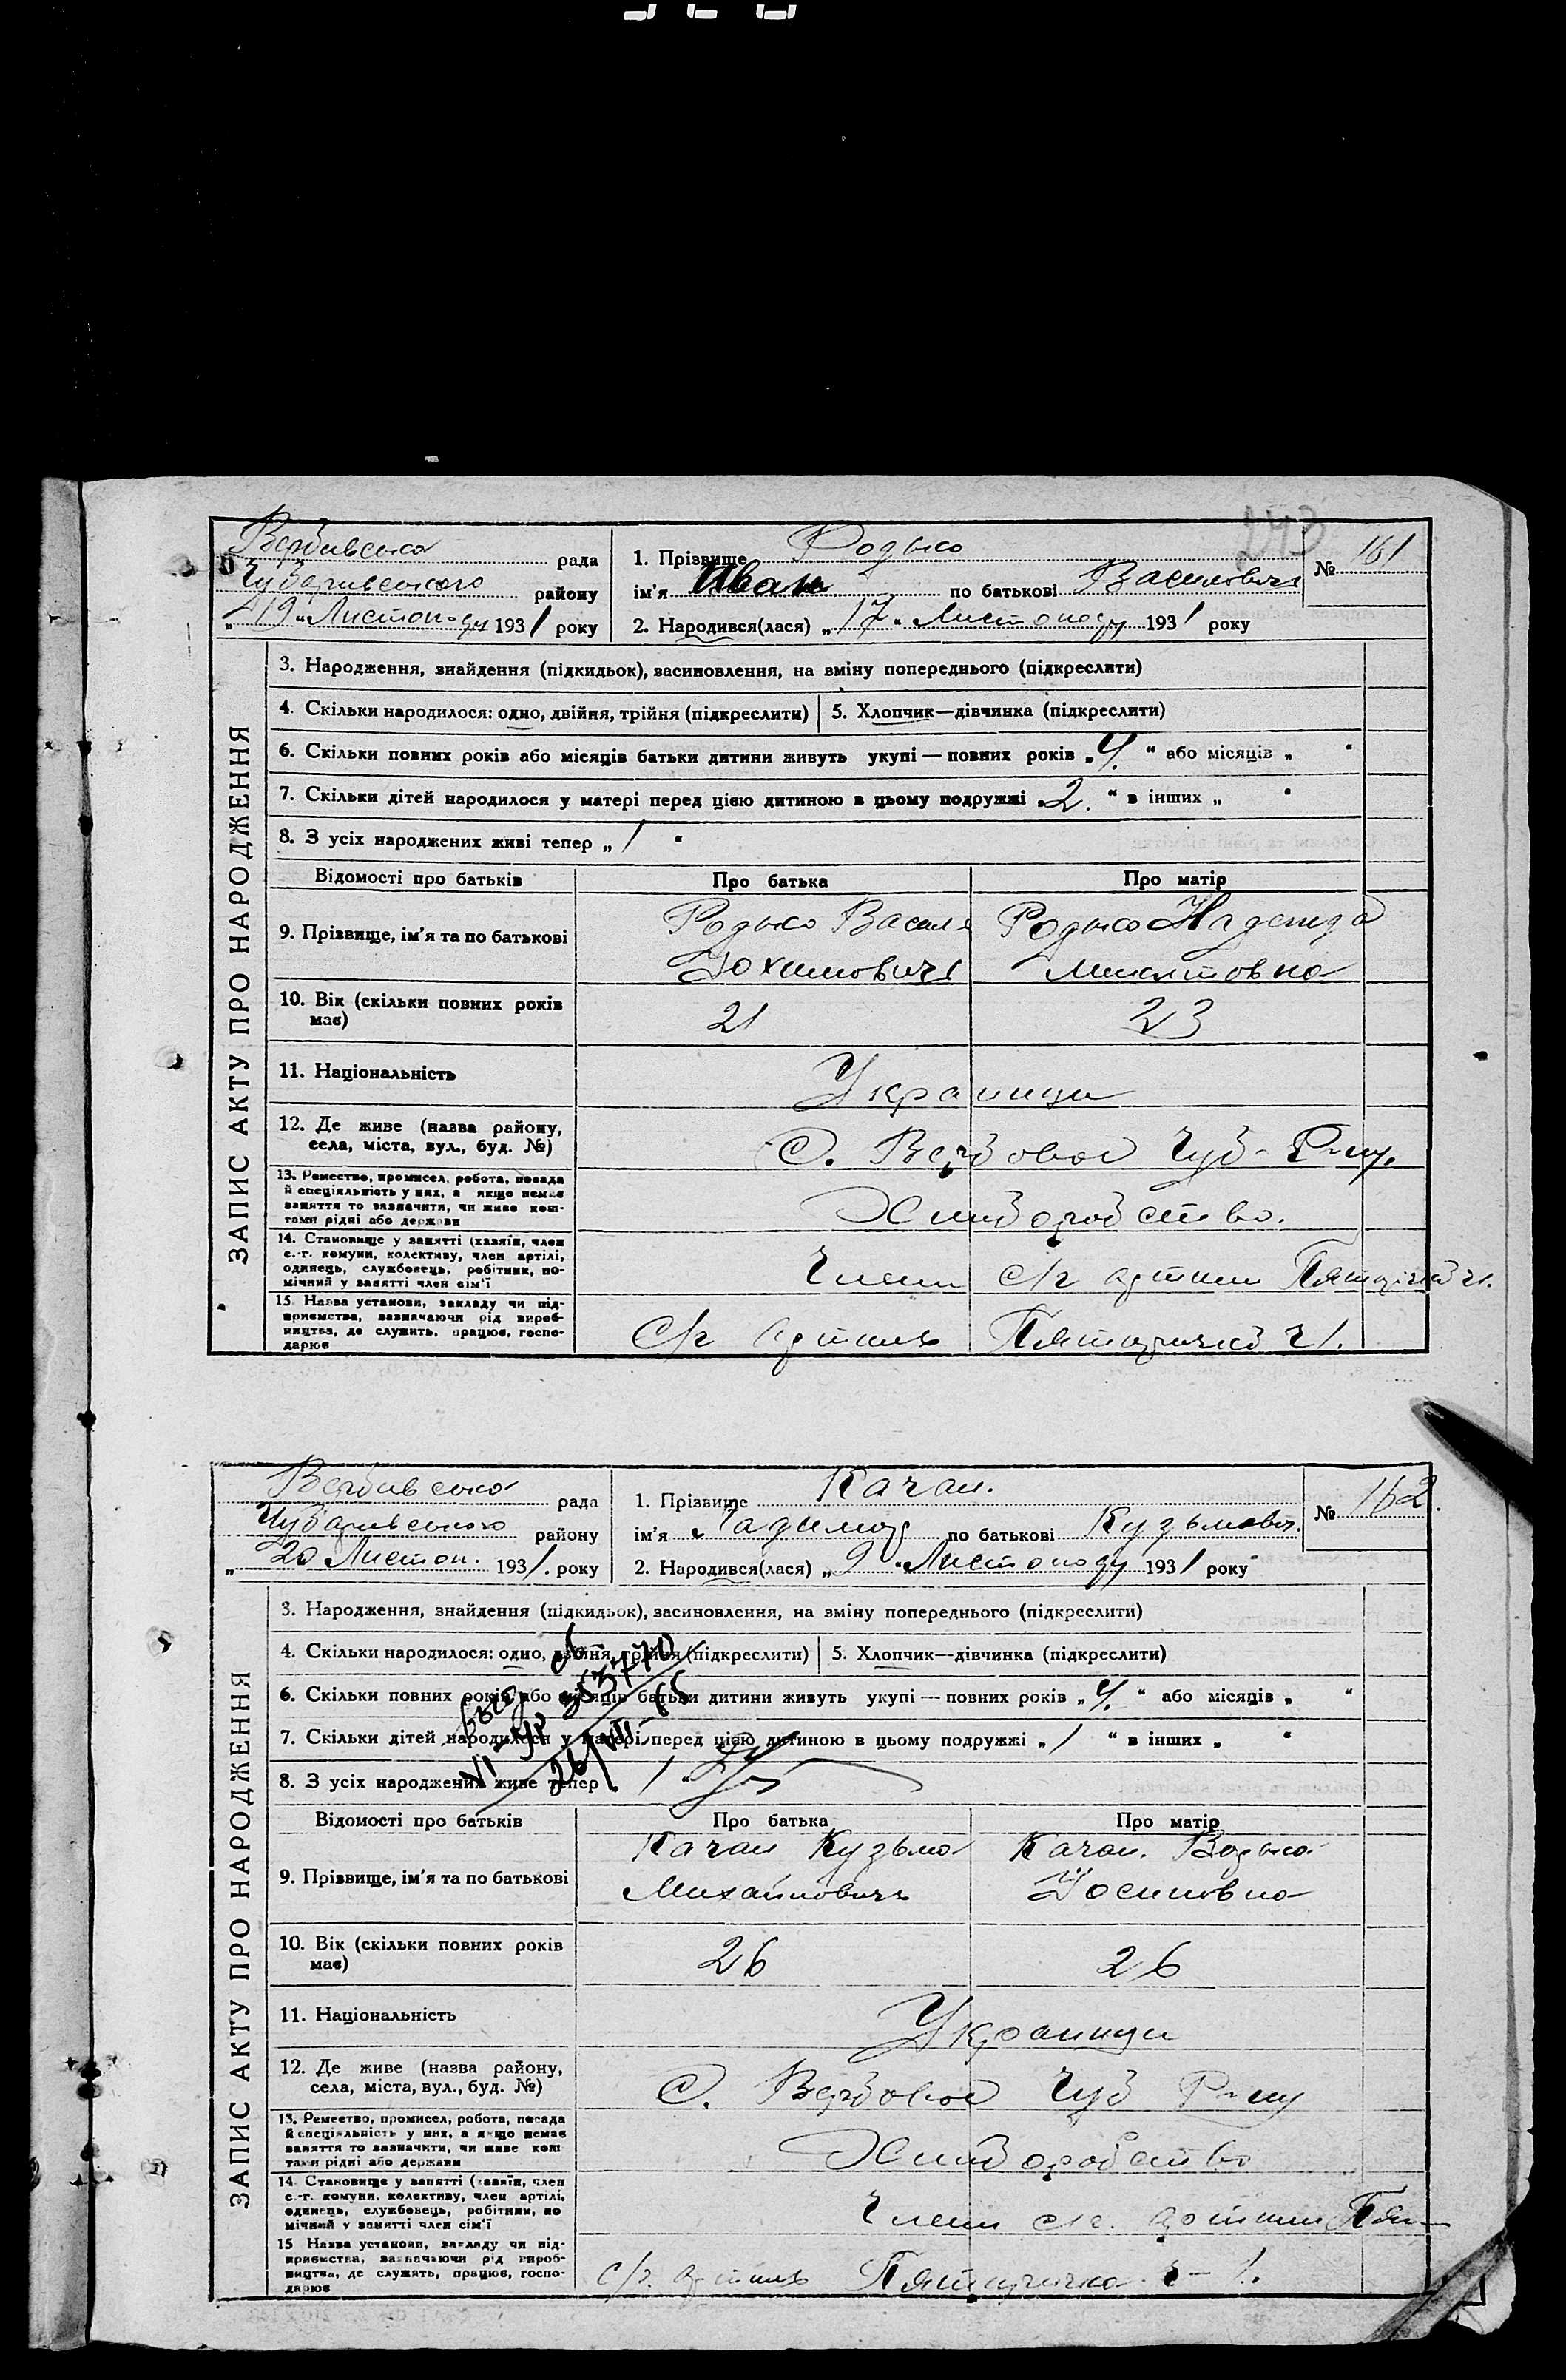 243
Вербивська рада
Чубаривського району
„19“ Листопаду 1931 року
1. Прізвище Родько
ім'я Иван по батькові Василович
2. Народився(лася) „17“ Листопаду 1931 року
№ 161
ЗАПИС АКТУ ПРО НАРОДЖЕННЯ
3. Народження, знайдення (підкидьок), засиновлення, на зміну попереднього (підкреслити)
4. Скільки народилося: одно, двійня, трійня (підкреслити) 5. Хлопчик—дівчинка (підкреслити)
6. Скільки повних років або місяців батьки дитини живуть укупі — повних років „4.“ або місяців „ “
7. Скільки дітей народилося у матері перед цією дитиною в цьому подружжі „2.“ в інших „ “
8. З усіх народжених живі тепер „1“
Відомості про батьків Про батька Про матір
9. Прізвище, ім'я та по батькові
Родько Василь Родько Надежда
10. Вік (скільки повних років має) 21 23
11. Національність Украинци
12. Де живе (назва району, села, міста, вул., буд. №)
С. Вербовое Чуб. Р-ну.
13. Ремество, промисел, робота, посада
й спеціяльність у них, а якщо немає
заняття то зазначити, чи живе кош-
тами рідні або держави
Хлиборобство.
14. Становище у занятті (хазяїн, член
с.-г. комуни, колективу, член артілі,
одинець, службовець, робітник, по-
мічний у занятті член сім'ї
Члени с/г артили
15. Назва установи, закладу чи під-
приємства, зазначаючи рід вироб-
ництва, де служить, працює, госпо-
дарює
С/г артиль
Вербивська рада
Чубаривського району
„20 Листоп. 1931. року
1. Прізвище Качан.
ім'я по батькові Кузьмович.
2. Народився(лася) „9“ Листопаду 1931 року
№ 162.
ЗАПИС АКТУ ПРО НАРОДЖЕННЯ
3. Народження, знайдення (підкидьок), засиновлення, на зміну попереднього (підкреслити)
4. Скільки народилося: одно, двійня, трійня (підкреслити) 5. Хлопчик—дівчинка (підкреслити)
6. Скільки повних років або місяців батьки дитини живуть укупі — повних років „4.“ або місяців „ “
7. Скільки дітей народилося у матері перед цією дитиною в цьому подружжі „1“ в інших „ “
8. З усіх народжених живе тепер „1
VI-УР 353770
26/VII-65
Відомості про батьків Про батька Про матір
9. Прізвище, ім'я та по батькові
Качан Кузьма Качан.
Михайлович Йосиповна
10. Вік (скільки повних років має) 26 26
11. Національність Украинци
12. Де живе (назва району, села, міста, вул., буд. №)
С. Вербовое Чуб Р-ну
13. Ремество, промисел, робота, посада
й спеціяльність у них, а якщо немає
заняття то зазначити, чи живе кош-
тами рідні або держави
Хлиборобство
14. Становище у занятті (хазяїн, член
с.-г. комуни, колективу, член артілі,
одинець, службовець, робітник, по-
мічний у занятті член сім'ї
Члени с/г. артили
15 Назва установи, закладу чи під-
приємства, зазначаючи рід вироб-
ництва, де служять, працює, госпо-
дарює
с/г. артиль